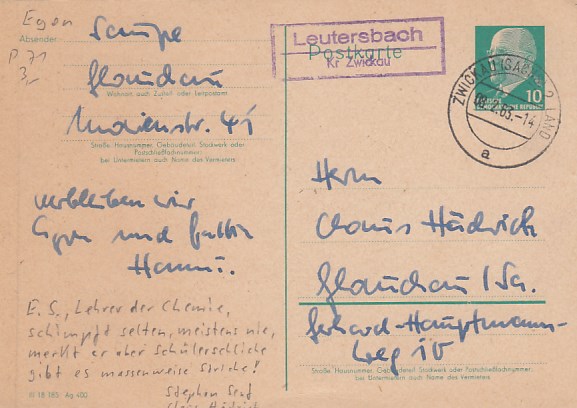 Egon
Absender: Sampe
P 71
3,-
Glauchau
Wohnort, auch Zustell- oder Leitpostamt
Indienstr. 41
Straße, Hausnummer, Gebäudeteil, Stockwerk oder
Postschließfachnummer;
bei Untermietern auch Name des Vermieters
Leutersbach
Kr Zwickau
Postkarte
10
DEUTSCHE DEMOKRATISCHE REPUBLIK
ZWICKAU (SACHS) 2 LAND
65.-14
a
verbleiben wir
Egon und Gattin
Hanni.
E. S., Lehrer der Chemie,
schimpft selten, meistens nie,
merkt er aber Schülerschliche
gibt es massenweise Striche!
Stephan Graf
Herrn
Claus Hädrich
Glauchau / Sa.
Gerhard-Hauptmann-
weg 10
Straße, Hausnummer, Gebäudeteil, Stockwerk oder Postschließfachnummer;
bei Untermietern auch Name des Vermieters
III 18 185 Ag 400
Claus Hädrich